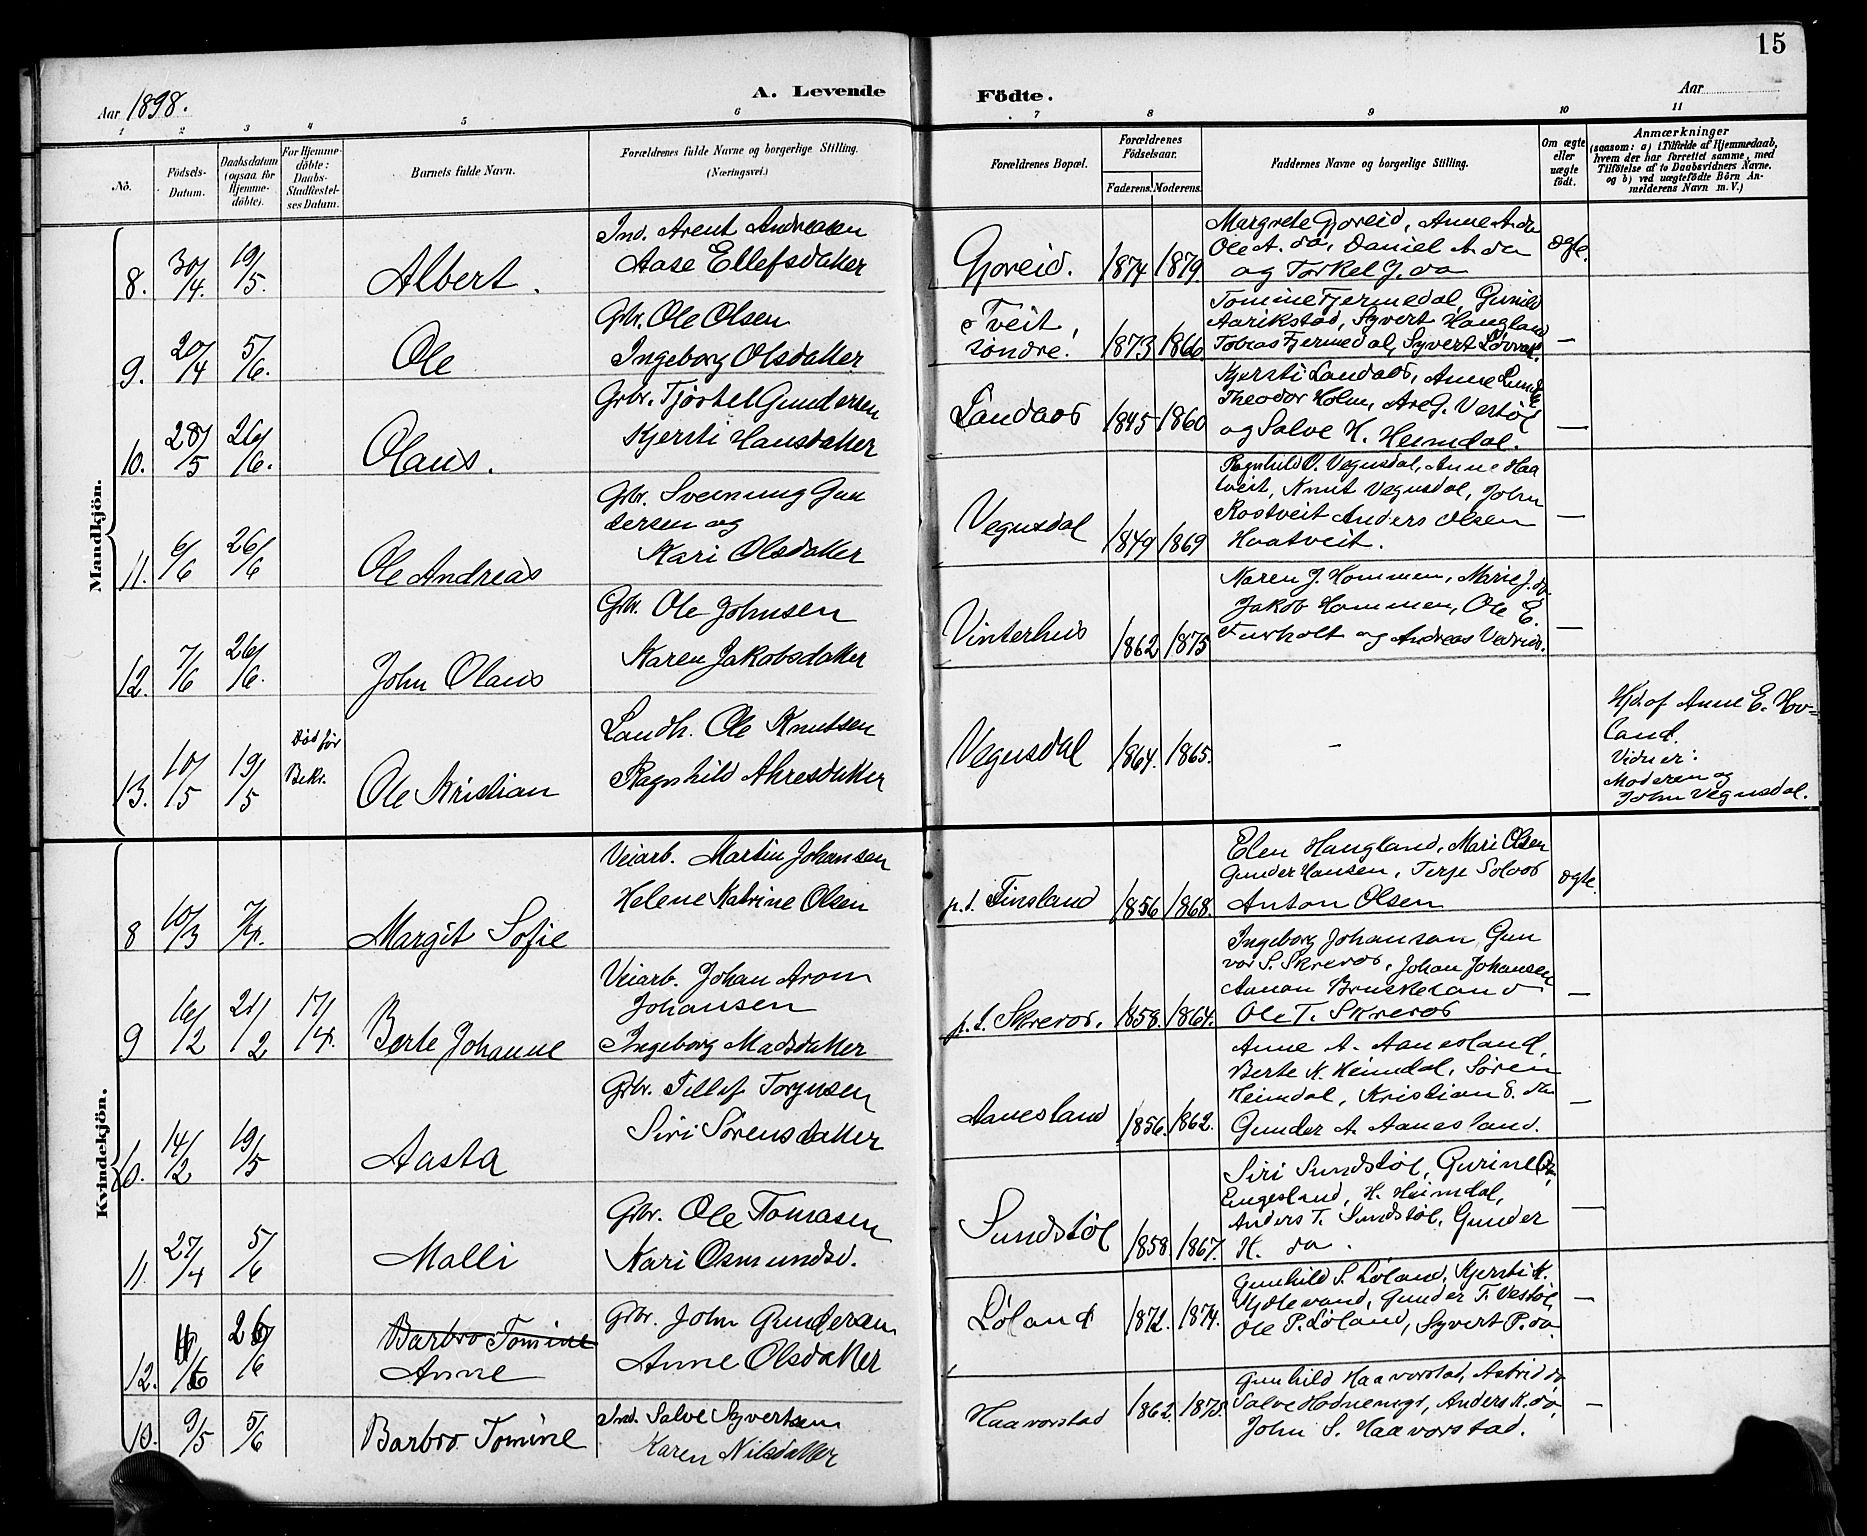 15
Aar 1898.
A. Levende Födte.
Aar
1 2 3 4 5 6 7 8 9 10 11
No.
Födsels-Datum.
Daabsdatum (ogsaa for Hjemmedöbte).
For Hjemmedöbte: Daabs-Stadfæstelses Datum.
Barnets fulde Navn.
Forældrenes fulde Navne og borgerlige Stilling.
(Næringsvei.)
Forældrenes Bopæl.
Forældrenes Födselsaar.
Faderens. Moderens.
Faddernes Navne og borgerlige Stilling.
Om ægte eller uægte födt.
Anmærkninger
(saasom: a) i Tilfælde af Hjemmedaab, hvem der har forrettet samme, med Tilföielse af to Daabsvidners Navne. og b) ved uægtefödte Börn Anmelderens Navn m. V.)
Mandkjön.
8. 30/4. 19/5. Albert.
Ind. Arent Andreasen
Aase Ellefsdatter
Gjoreid. 1874 1879.
Margrete Gjoreid, Anne A. do
Ole A. do, Daniel A. do
og Torkel J. do
ægte.
9. 20/4 5/6. Ole
Gbr. Ole Olsen
Ingeborg Olsdatter
Tveit, söndre. 1873 1866
Tomine Fjermedal, Gunild
Aarikstad, Syvert Haugland
Tobias Fjermedal, Syvert
—
10. 28/5 26/6. Olaus.
Gbr. Tjöstel Gundersen
Kjersti Hansdatter
Landaas 1845 1860
Kjersti Landaas, Anne
Theodor Holm, Are G. Vestöl
og Salve H. Heimdal.
—
11. 6/6 26/6 Ole Andreas
Gbr. Sveinung Gun
dersen og
Kari Olsdatter
Vegusdal 1849 1869
Ragnhild O. Vegusdal, Anne Haa
tveit, Knut Vegusdal, John
Rostveit Anders Olsen
Haatveit.
—
12. 7/6 26/6. John Olaus
Gbr. Ole Johnsen
Karen Jakobsdatter
Vinterhus 1862 1875
Karen J. Hommen, Marie J. do
Jakob Hommen, Ole E.
Furholt og Andreas
—
13. 10/5 19/5 Död för Bekr. Ole Kristian
Landh. Ole Knutsen
Ragnhild Ahresdatter
Vegusdal 1864. 1865.
–
Hjd. af Anne E. Hov=
land.
Vidner:
Moderen og
John Vegusdal.
Kvindekjön.
8 10/3 Margit Sofie
Veiarb. Martin Johansen
Helene Katrine Olsen
p.t. Finsland 1856 1868.
Elen Haugland, Mari Olsen
Gunder Hansen, Terje Solaas
Anton Olsen
ægte.
9 16/2 21/2 17/4. Berte Johanne
Veiarb. Johan Arom
Johansen
Ingeborg Madsdatter
p.t. Skreros. 1858. 1864.
Ingeborg Johansen, Gun
vor S. Skreros, Johan Johansen
Aanon Bruskeland
Ole T. Skreros
—
10. 14/2 19/5 Aasta
Gbr. Tellef Torjusen
Siri Sörensdatter
Aanesland 1856. 1862.
Anne A. Aanesland,
Berte K. Heimdal, Sören
Heimdal, Kristian S. do
Gunder A. Aanesland.
—
11. 27/4 5/6 Malli
Gbr. Ole Tomasen
Kari Osmundsd.
Sundstöl 1858. 1867.
Siri Sundstöl, Gurine O.
Engesland, H. Heimdal,
Anders T. Sundstöl, Gunder
H. do.
—
12. 26/6 Barbro Tomine
Anne
Gbr. John Gundersen
Anne Olsdatter
Löland 1872. 1874.
Gunhild S. Löland, Kjersti K.
Gunder T. Vestöl,
Ole P. Löland, Syvert P. do.
—
13. 9/5 5/6 Barbro Tomine
Ind. Salve Syvertsen
Karen Nilsdatter
Haavorstad 1862. 1875.
Gunhild Haavorstad, Astrid do
Salve Anders K. do,
John S. Haavorstad.
—